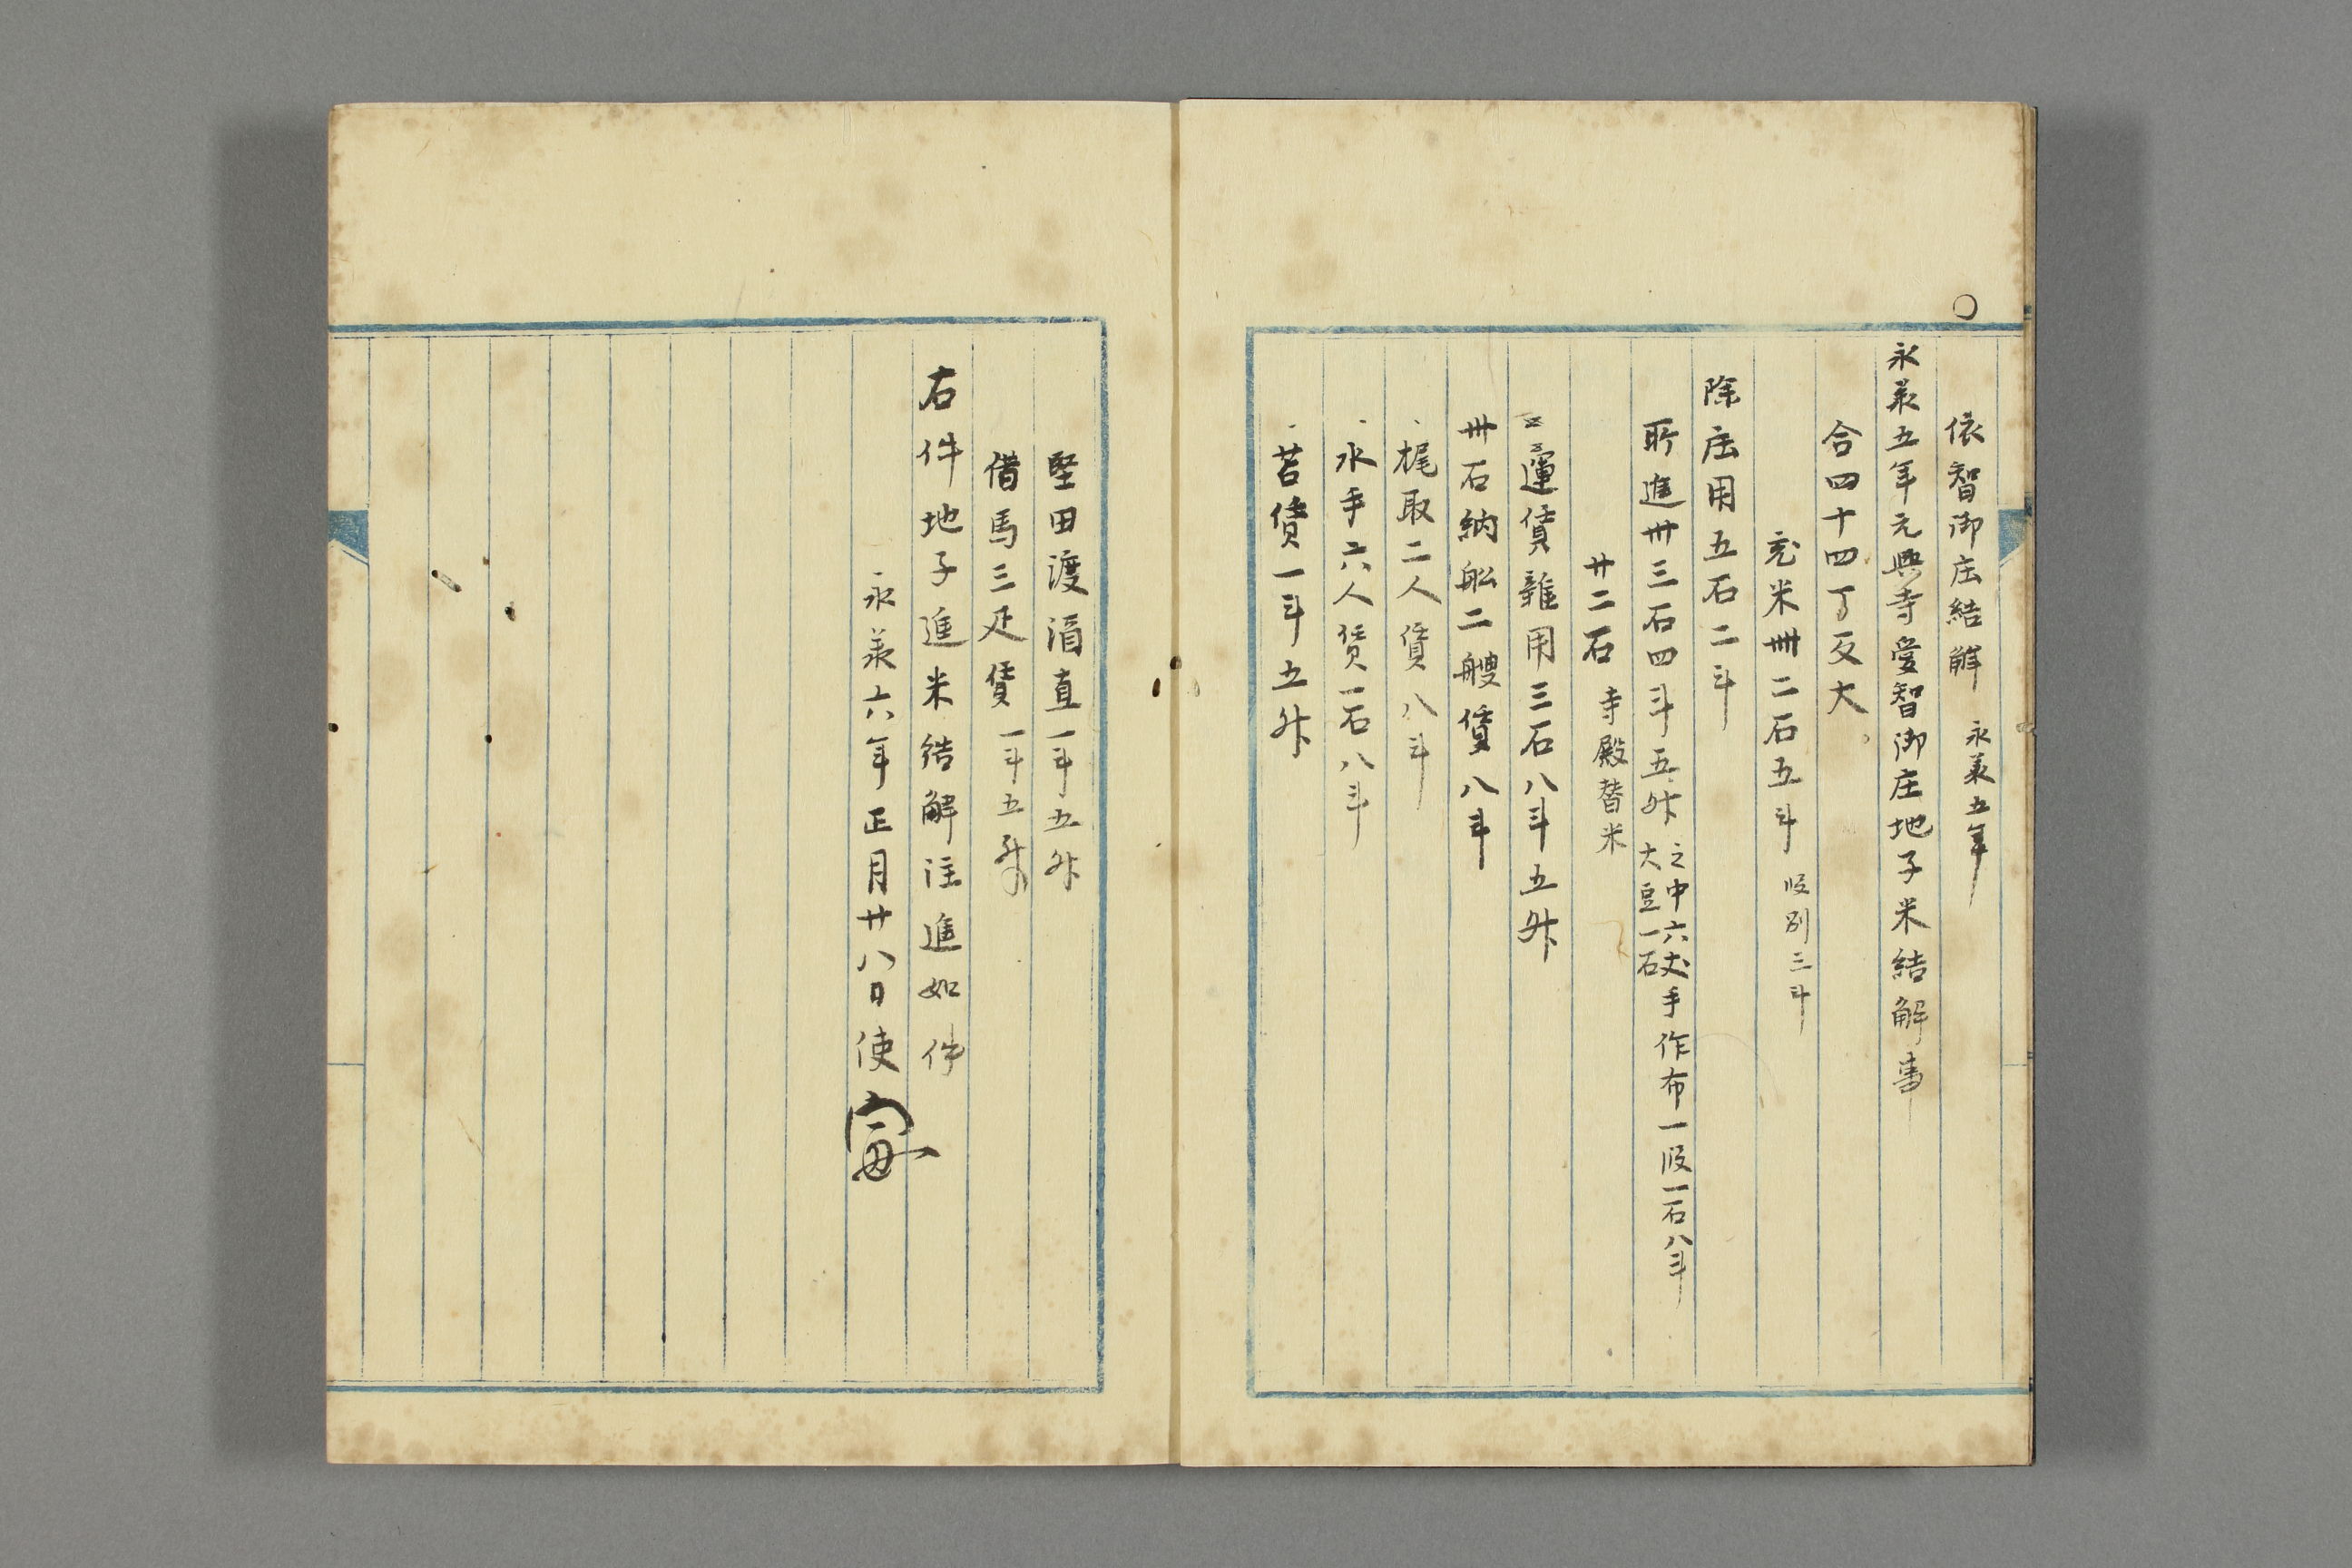 ○
依智御庄結解 永義五年
永義五年元興寺愛智御庄地子米結解事
合四十四丁反大
充米卌二石五斗 段別三斗
除庄用五石二斗
所進卅三石四斗五升 之中六丈手作布一段一石八斗
大豆一石
廿二石 寺殿替米
運賃雑用三石八斗五升
卅石納舩二艘賃八斗
梶取二人賃八斗
水手六人賃一石八斗
苫賃一斗五升
堅田渡酒直一斗五升
借馬三疋賃一斗五升
右件地子進米結解注進如件
永義六年正月廿八日使